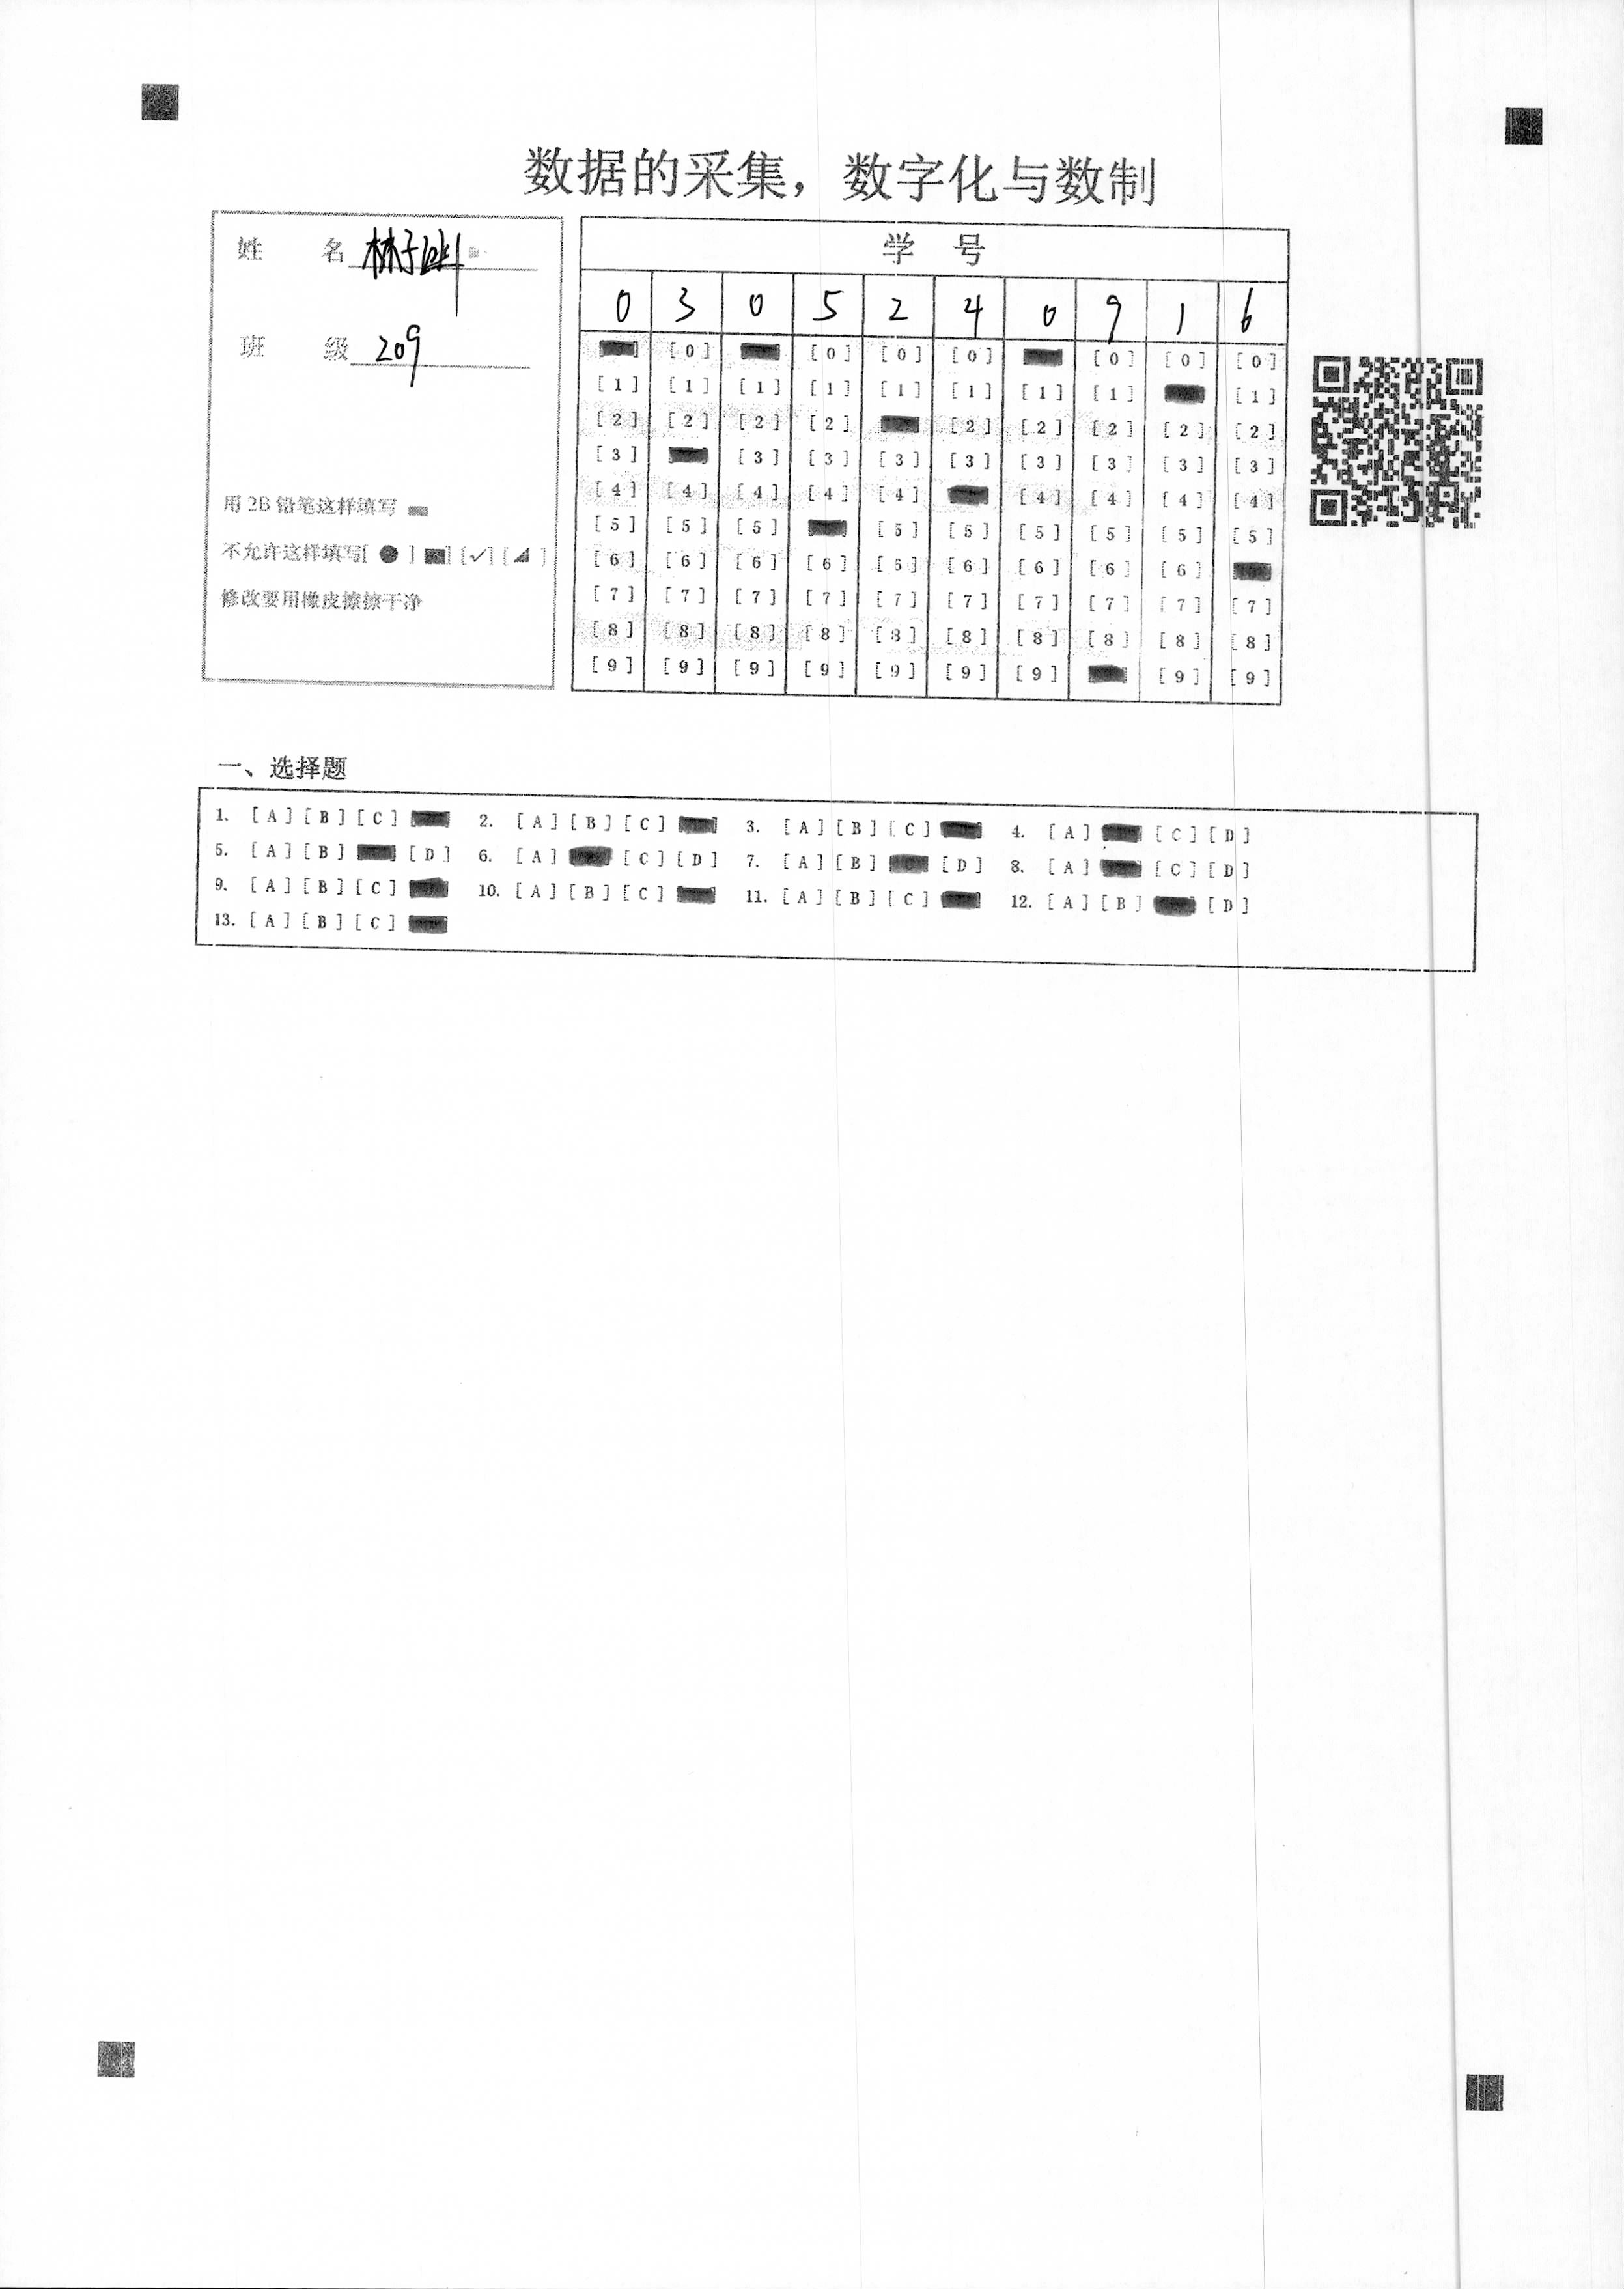 数据的采集，数字化与数制
姓 名 林子
班 级 209
用 2B 铅笔这样填写
不允许这样填写[ ● ] [■] [✓] [◢ ]
修改要用橡皮擦擦干净
学 号
0 3 0 5 2 4 0 9 1 6
[0] [0] [0] [0] [0] [0] [0]
[1] [1] [1] [1] [1] [1] [1] [1] [1]
[2] [2] [2] [2] [2] [2] [2] [2] [2]
[3] [3] [3] [3] [3] [3] [3] [3] [3]
[4] [4] [4] [4] [4] [4] [4] [4] [4]
[5] [5] [5] [5] [5] [5] [5] [5] [5]
[6] [6] [6] [6] [6] [6] [6] [6] [6]
[7] [7] [7] [7] [7] [7] [7] [7] [7] [7]
[8] [8] [8] [8] [8] [8] [8] [8] [8] [8]
[9] [9] [9] [9] [9] [9] [9] [9] [9]
一、选择题
1. [A] [B] [C] 2. [A] [B] [C] 3. [A] [B] [C] 4. [A] [C] [D]
5. [A] [B] [D] 6. [A] [C] [D] 7. [A] [B] [D] 8. [A] [C] [D]
9. [A] [B] [C] 10. [A] [B] [C] 11. [A] [B] [C] 12. [A] [B] [D]
13. [A] [B] [C]